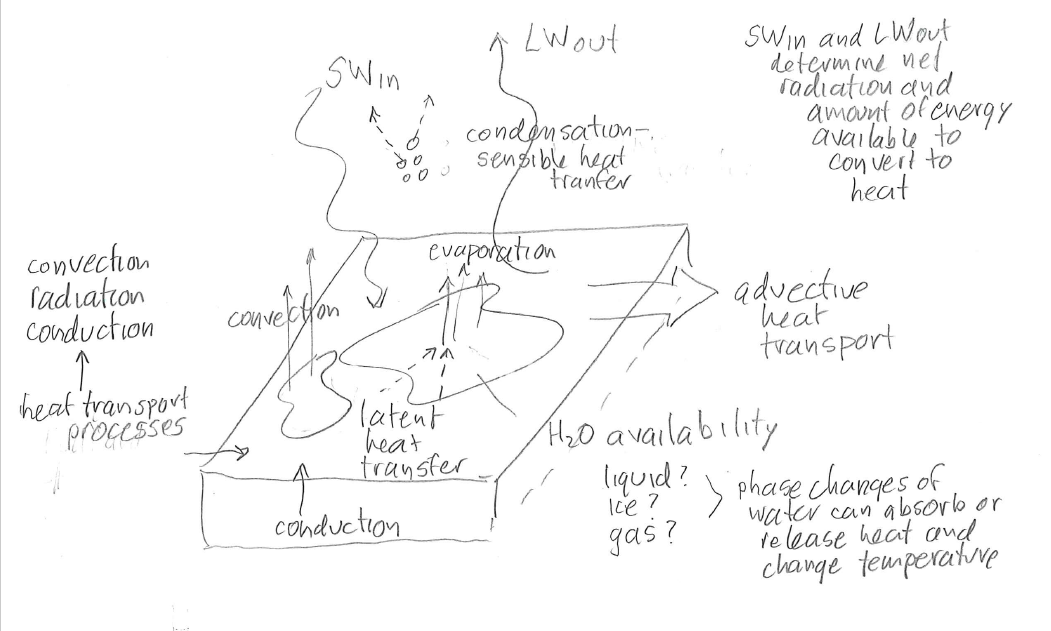 LWout
SWin
SWin and LWout
determine net
radiation and
amount of energy
available to
convert to
heat
condensation-
sensible heat
tranfer
evaporation
convection
radiation
conduction
heat transport
processes
convection
advective
heat
transport
latent
heat
transfer
H2O availability
liquid?
ice?
gas?
phase changes of
water can absorb or
release heat and
change temperature
conduction